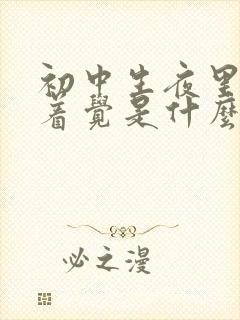 初中生夜里
着覺是什麼
必之漫